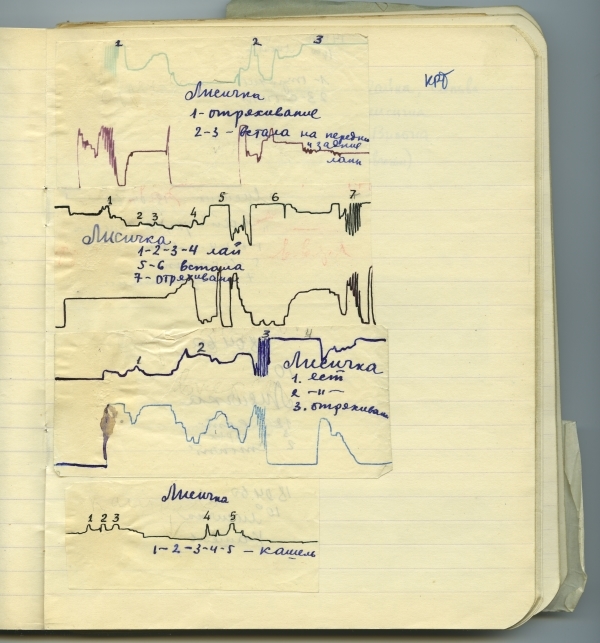 1 2 3
КРБ
Лисичка
1 - отряхивание
2-3 - встала на передни
и задние
лапы
1 2 3 4 5 6 7
Лисичка
1-2-3-4 лай
5-6 встала
7- отряхивани
1 2 3 4
Лисичка
1. ест
2 -"-
3. отряхивани
Лисичка
1 2 3 4 5
1-2-3-4-5 - кашель